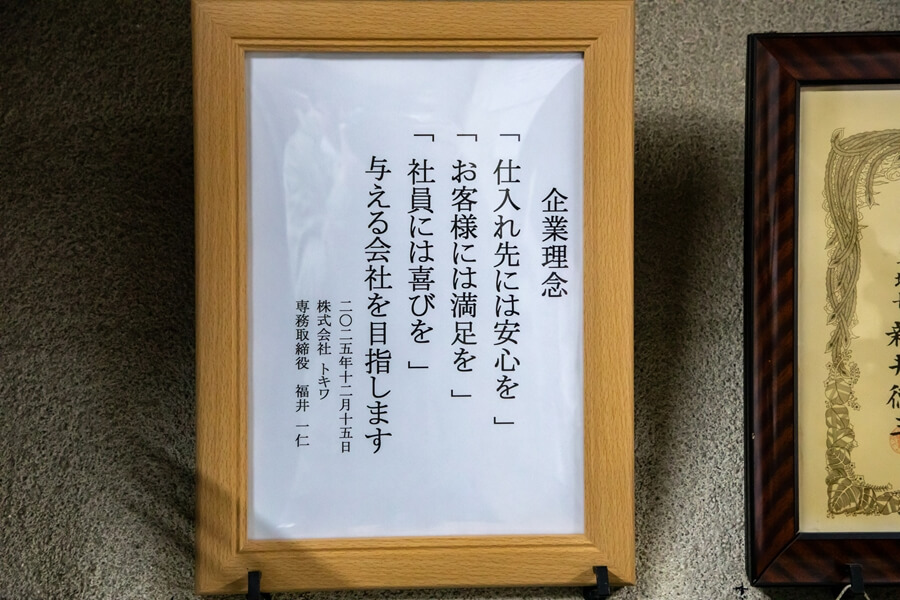 企業理念
「仕入れ先には安心を」
「お客様には満足を」
「社員には喜びを」
与える会社を目指します
二〇二五年十二月十五日
株式会社 トキワ
専務取締役 福井 一仁